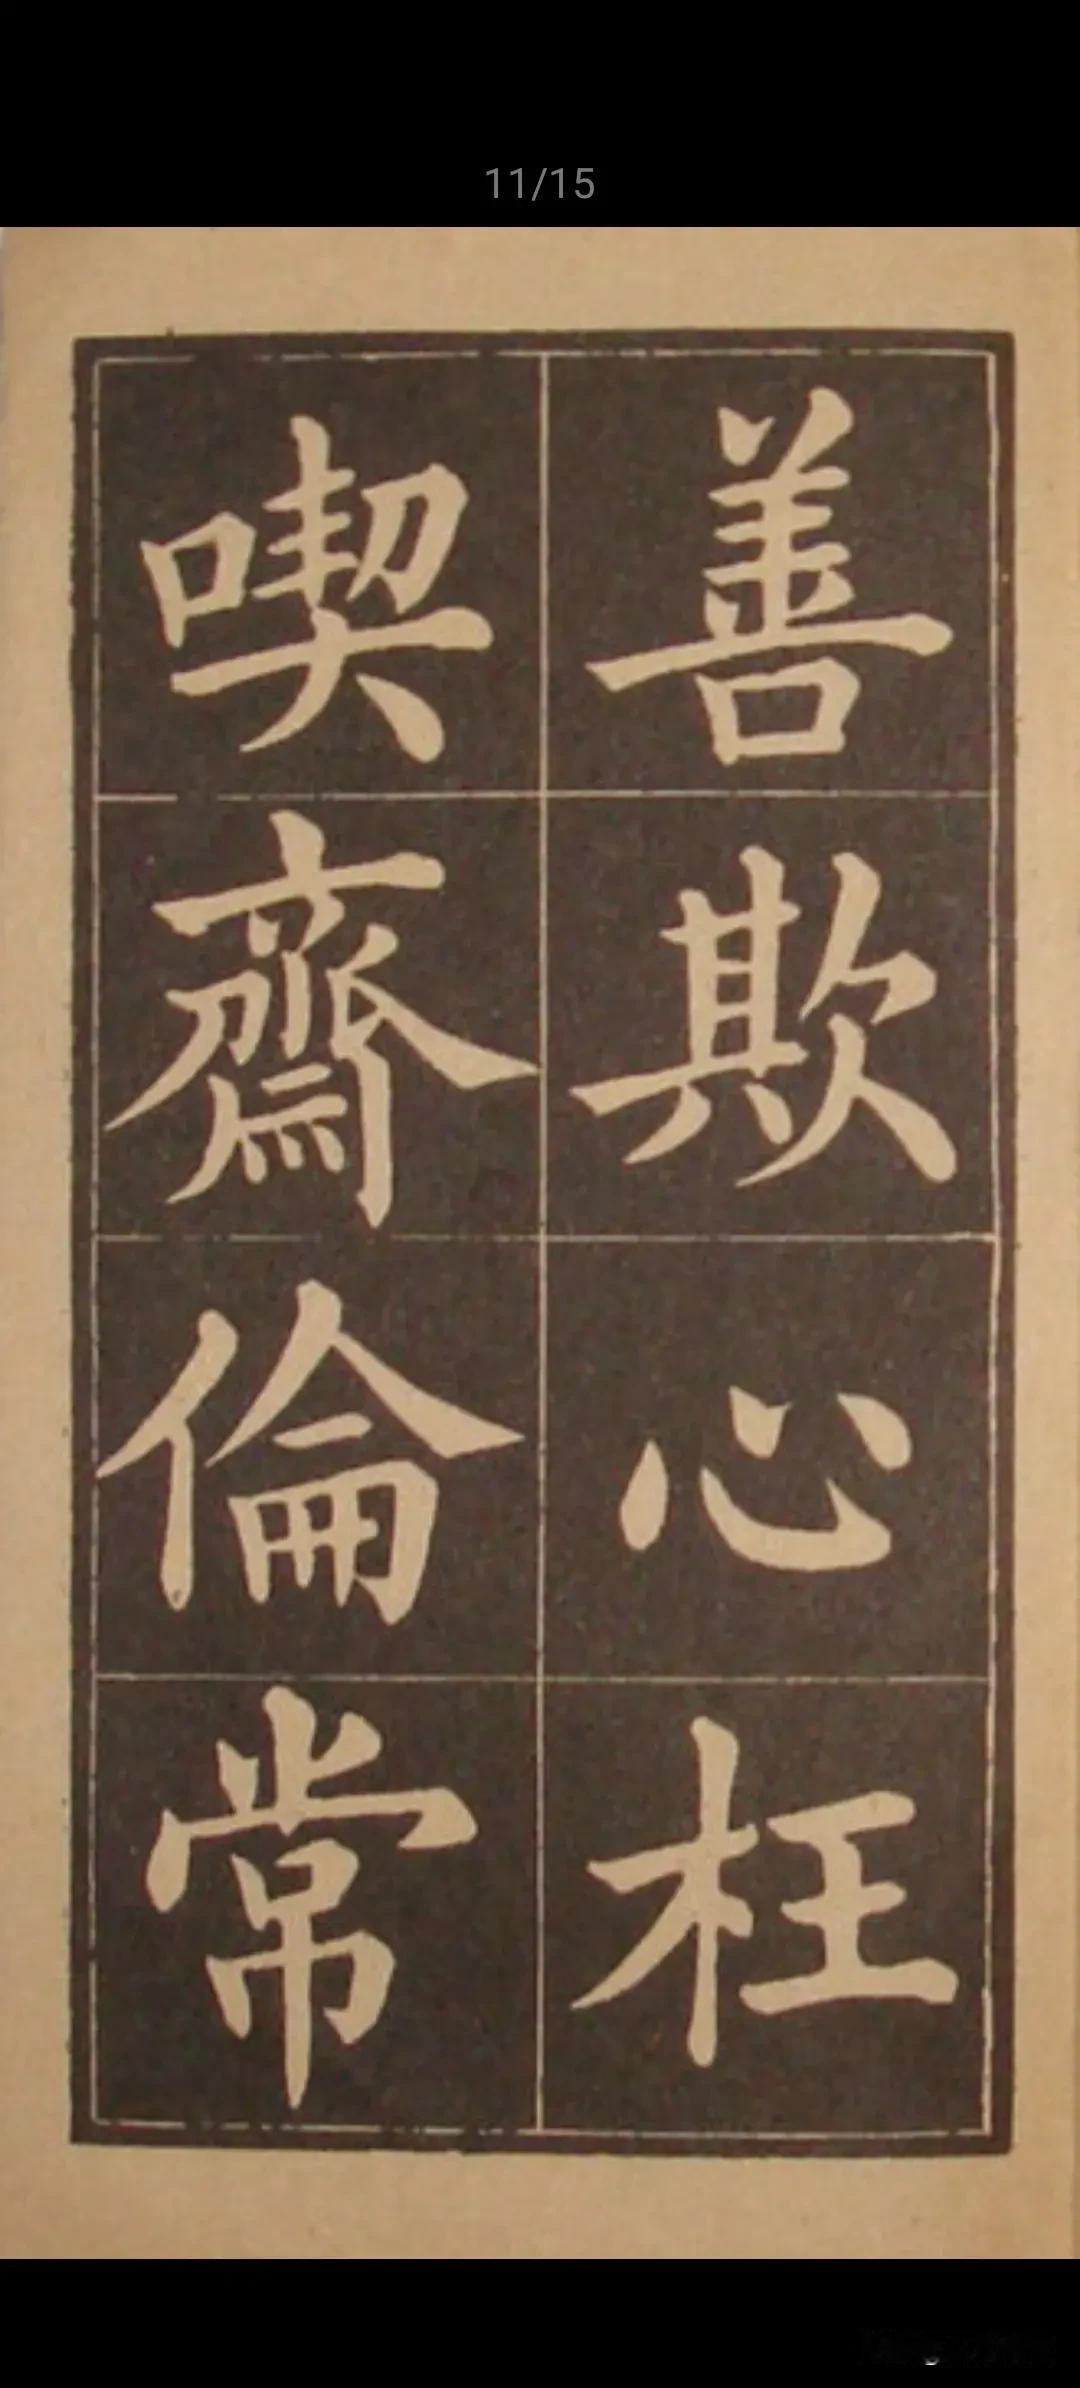 11/15
善欺心枉
喫齋倫常